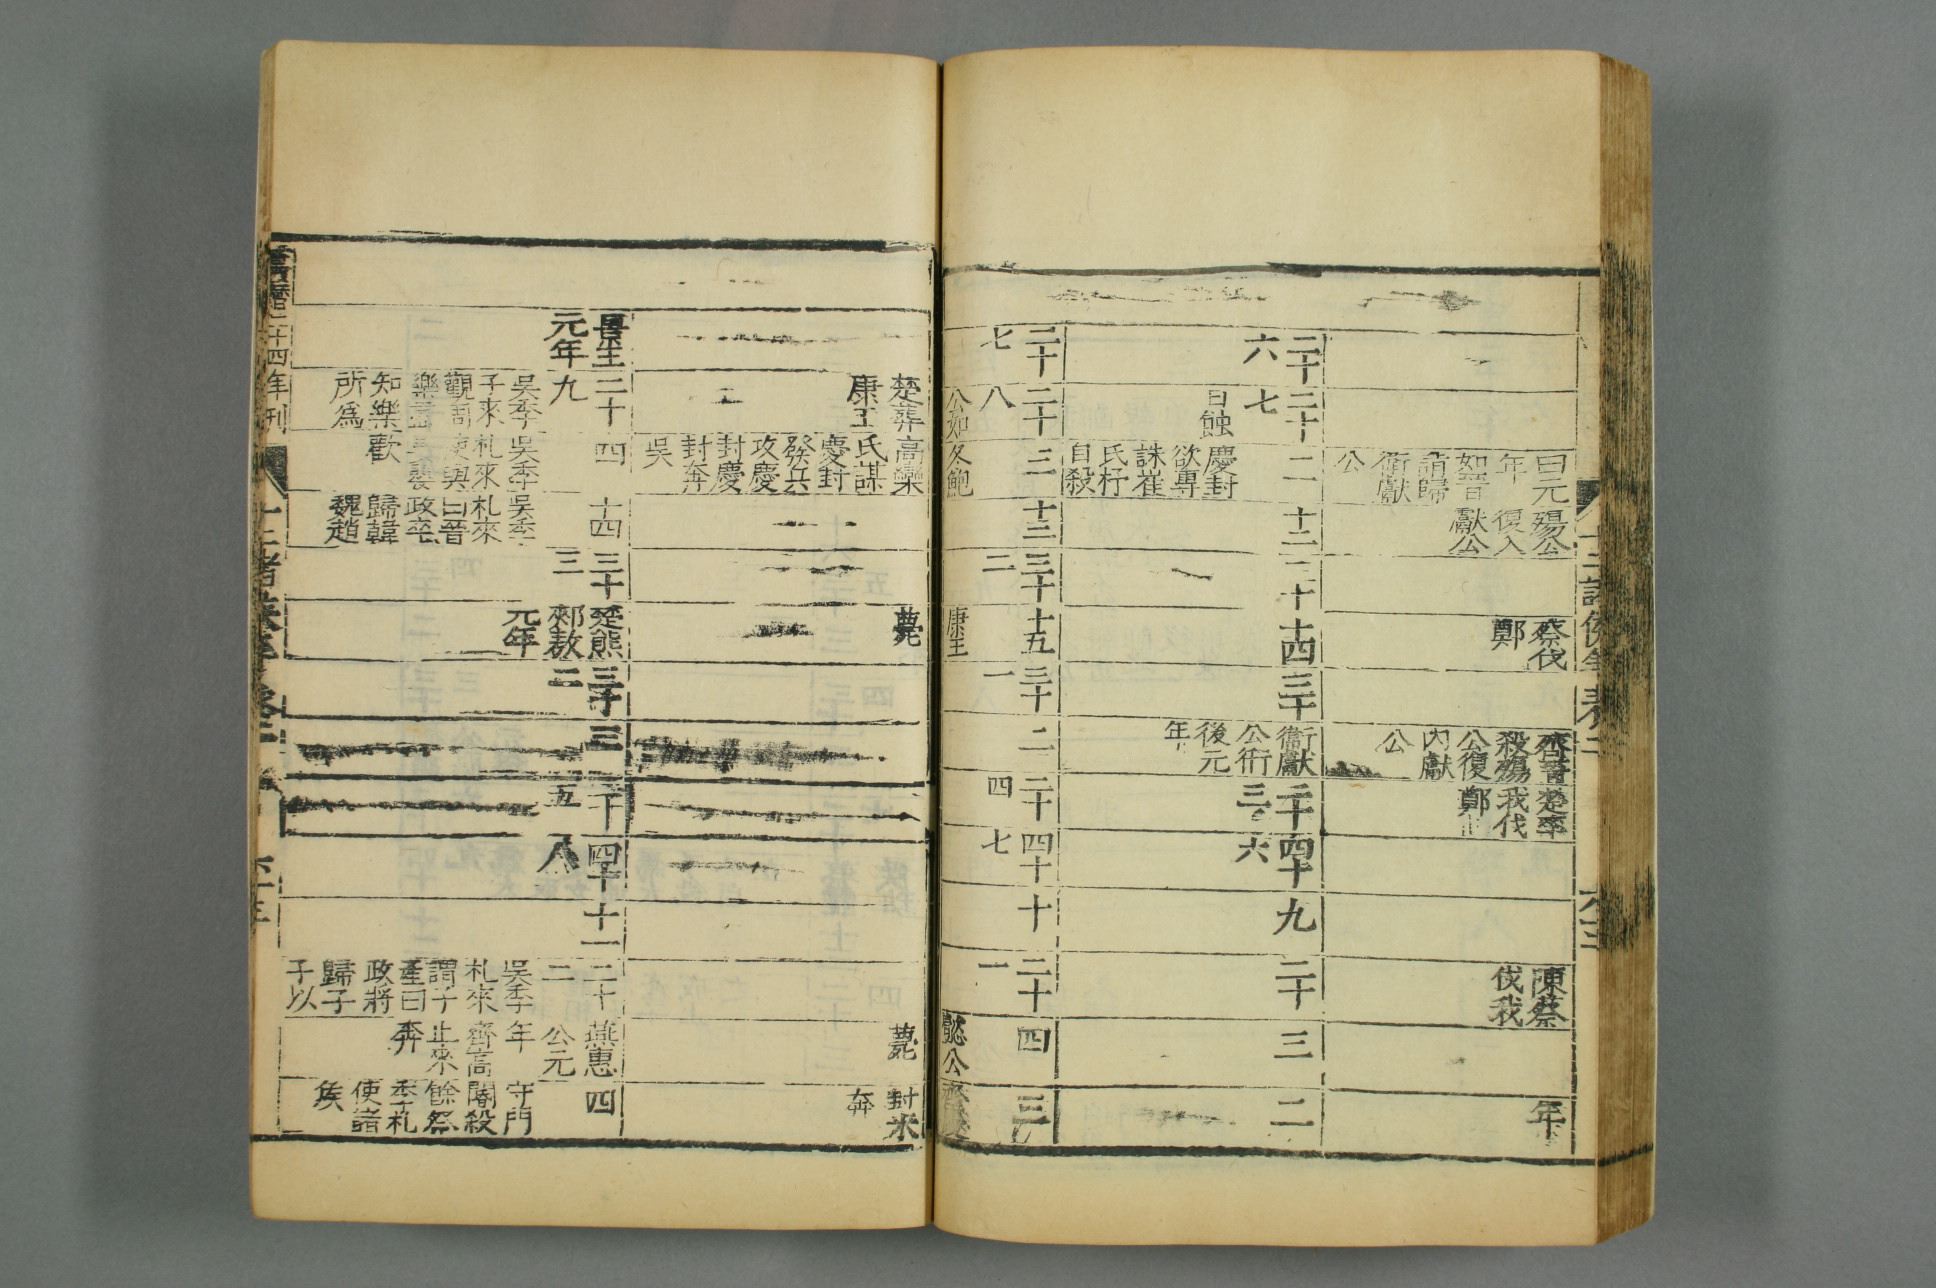 十二諸侯年表二
六十三
曰元
年
如晉
請歸
衛獻
公
殤公
復入
獻公
蔡伐
鄭
齊晉
殺殤
公復
內獻
公
楚率
我伐
鄭
陳蔡
伐我
年
二十
六
二十
七
日蝕
二
慶封
欲專
誅崔
氏杼
自殺
十二
十四
三十
衛獻
公衎
後元
年
二十
三
四十
六
九
二十
三
二
二十
七
二十
八
公如
三
冬鮑
十三
三十
二
十五
康王
三十
一
二
二十
四
四十
七
十
二十
一
四
懿公
三
齊慶
楚葬
康王
高欒
氏謀
慶封
發兵
攻慶
封慶
封奔
吳
薨
薨
封來
奔
景王
元年
二十
九
吳季
子來
觀周
樂盡
知樂
所為
四
吳季
札來
使與
歡
十四
吳季
札來
曰晉
政卒
歸韓
魏趙
三十
三
楚熊
郟敖
元年
三十
二
三
二十
五
四十
八
十一
二十
二
吳季
札來
謂子
產曰
政將
歸子
子以
燕惠
公元
年
齊高
止來
奔
四
守門
閽殺
餘祭
季札
使諸
侯
萬曆二十四年刊